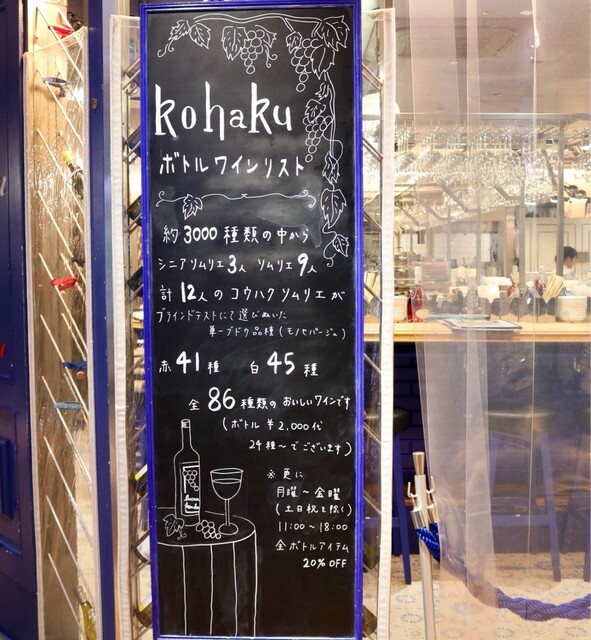 kohaku
ボトルワインリスト
約3000種類の中から
シニアソムリエ3人 ソムリエ9人
計12人のコウハクソムリエが
ブラインドテストにて選びぬいた
単一ブドウ品種(モノセパージュ)
赤41種 白45種
全86種類のおいしいワインです
(ボトル ¥2,000代
24種〜でございます)
※更に
月曜〜金曜
(土日祝を除く)
11:00〜18:00
全ボトルアイテム
20%OFF